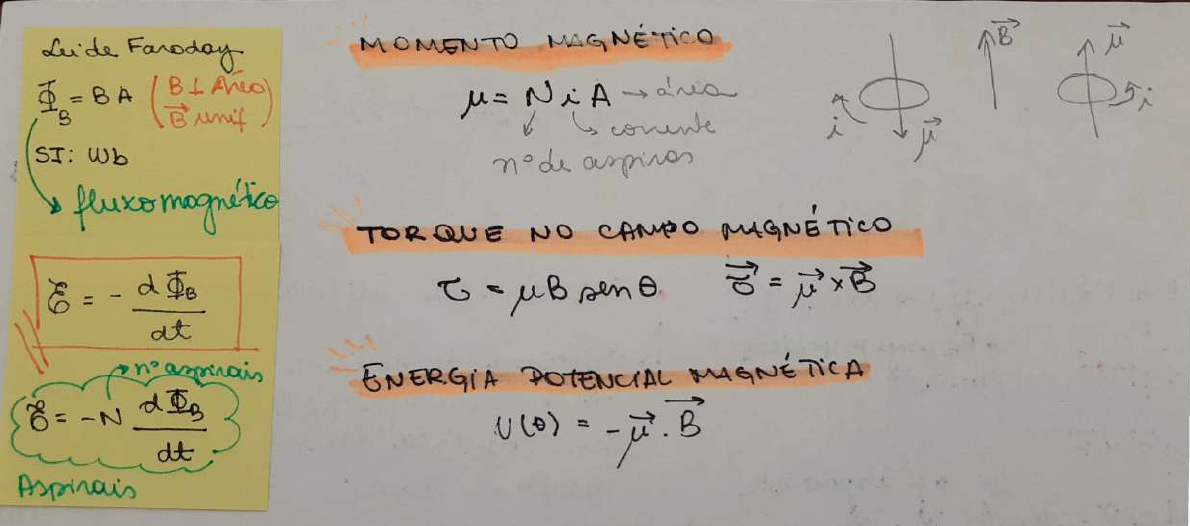 Lei de Faraday
Φ_B = B A (B ⊥ Área)
(B⃗ unif)
SI: Wb
fluxo magnético
ℰ = - dΦ_B / dt
nº aspirais
ℰ = -N dΦ_B / dt
Aspirais
MOMENTO MAGNÉTICO
μ = N i A → área
corrente
nº de aspiras
i
μ⃗
B⃗
μ⃗
i
TORQUE NO CAMPO MAGNÉTICO
τ = μ B sen θ τ⃗ = μ⃗ × B⃗
ENERGIA POTENCIAL MAGNÉTICA
U(θ) = - μ⃗ . B⃗